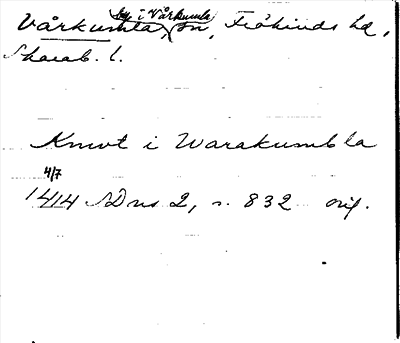 by i Vårkumla
Vårkumla, sn, Frökinds hd,
Skarab. l.
Knwt i Warakumbla
4/7
1414 SDns 2, s. 832 orig.